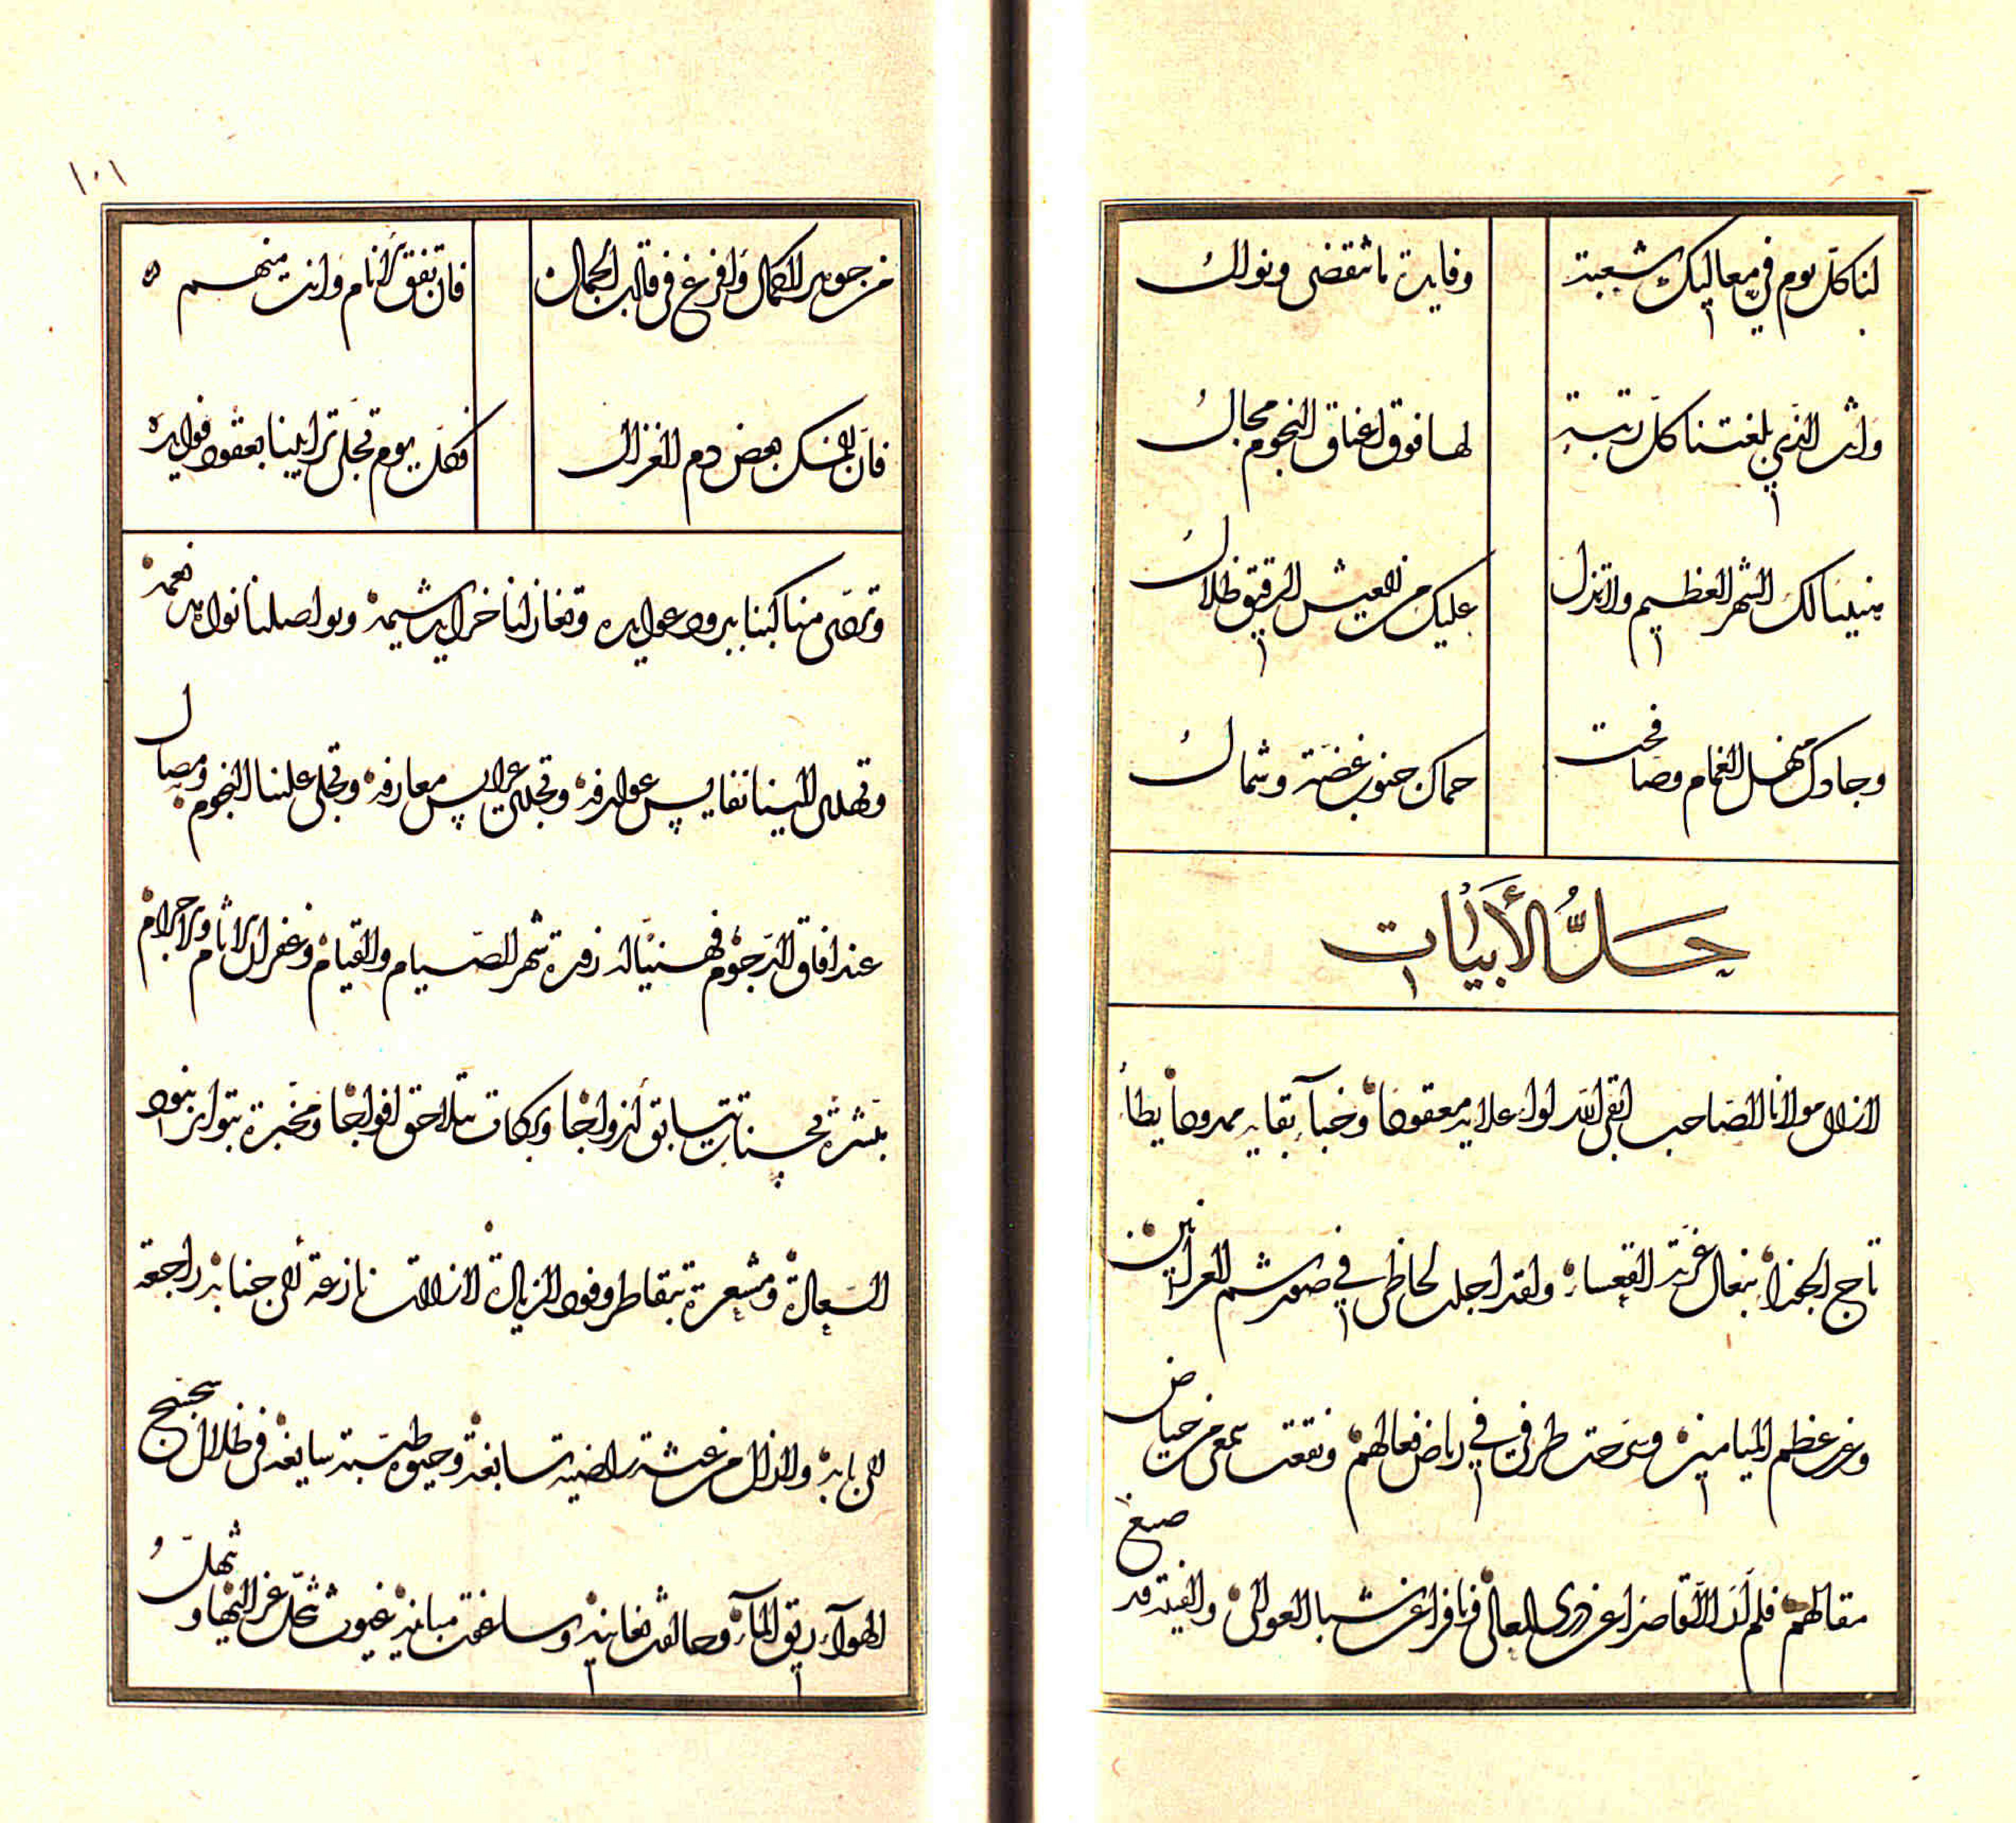 لنا كلّ يوم في معاليك شعبة وفايدة ما تنقضى ونوالُ
وانت الذي بلغتنا كلّ رتبةٍ لها فوق اعناق النجوم مجالُ
هنيئا لك الشهر العظيم ولا تزل عليك من العيش الرقيق ظلالُ
وجادك منهل الغمام وصافحت حماك جنوب غضّة وشمالُ
حَلُّ الأبيات
لا زال مولانا الصاحب ابقى الله لواء علايه معقودا وخبآء بقايه ممدودا يطأ
تاج الجوزاء بنعال عزته القعساء ولقد اجلت لحاظى في صور شم العرانين
وغر عظم الميامين وسرحت طرفي في رياض فعالهم ونقعت سمعى من حياض
مقالهم فلم ار الا قاصرا عن ذرى المعالى نافرا عن شبا العوالى والفيته قد صيغ
۱۰۱
من جوهر الكمال وافرغ فى قالب الجمال فان تفق الانام وانت منهم
فان المسك بعض دم الغزال فكل يوم تحلى ترايبنا بعقود فوايده
وتردى مناكبنا ببرود عوايده وتغازلنا خرايد شيمه وتواصلنا نعمه
وتهدى الينا نفايس عوارفه وتجلى عرايس معارفه وتجلى علينا النجوم ومصال
عند افاق الرجوم فهنيئا له زفرة شهر الصيام والقيام وغفران الاثام والاجرام
مبشرة بحسنات تتسابق ازواجا وبركات تتلاحق افواجا ومخبرة بتواتر بنود
السعادة ومشعرة بتقاطر وفود الزيادة لا زالت نازعة الى جنابه راجعة
الى بابه ولا زال من عيشة راضية سابغة وحيوة طيبة سايغة فى ظلال سجسج
الهوآء ريق المآء وحالفت مغانيه وسلفت مبانيه غيوث تحل عز اليها وتهلُّ